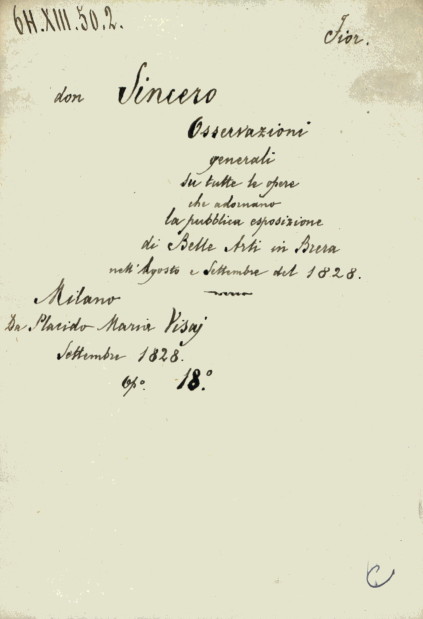 6H.XIII.50.2.
Fior.
don Sincero
Osservazioni
generali
su tutte le opere
che adornano
la pubblica esposizione
di Belle Arti in Brera
nell'Agosto e Settembre del 1828.
Milano
Da Placido Maria Visaj
Settembre 1828.
Opo. 18.o
C